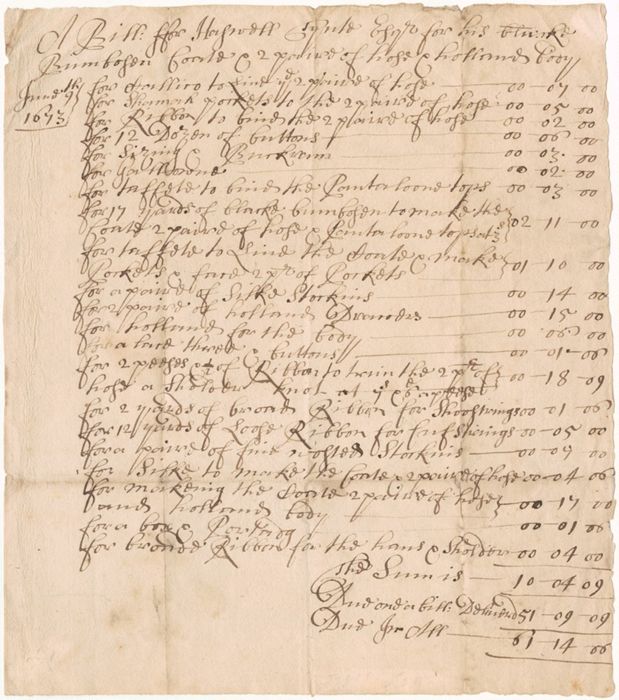 A Bill ffor Haswell Tynte Esqr for his blacke
Bumbosen Coate & 2 paire of hose & holland body
June 1673
for Callico to Line ye 2 paire of hose 00 - 07 - 00
for pockets to the 2 paire of hose 00 - 05 - 00
for Ribbon to bind the 2 paire of hose 00 - 02 - 00
for 12 Dozen of buttons 00 - 06 - 00
for & Buckrum 00 - 03 - 00
for Gallowne 00 - 02 - 00
for taffete to bind the Pantaloone tops 00 - 03 - 00
for 17 yards of blacke bumbosen to make the
Coate 2 paire of hose & Pantaloone tops 02 - 11 - 00
for taffete to Line the Coate & make
Pockets & face 2 pr of Pockets 01 - 10 - 00
for a paire of Silke Stockins 00 - 14 - 00
for 2 paire of holland Drawers 00 - 15 - 00
for holland for the body 00 - 06 - 00
for a lace thread & buttons 00 - 01 - 06
for 2 peeses of Ribbon to trim the 2 pr of
hose a Sholder knot at 00 - 18 - 09
for 2 yards of broad Ribbon for Shoostrings 00 - 01 - 06
for 12 yards of Loose Ribbon for Cufstrings 00 - 05 - 00
for a paire of fine wosted Stockins 00 - 09 - 00
for Silke to make the Coate & 2 paire of hose 00 - 04 - 06
for makeing the Coate 2 paire of hose
and holland body 00 - 17 - 00
for a box & 00 - 01 - 06
for broade Ribbon for the hans & Sholder 00 - 04 - 00
The Sum is 10 - 04 - 09
Due one a bill Deliverd 51 - 09 - 09
Due In All 61 - 14 - 06